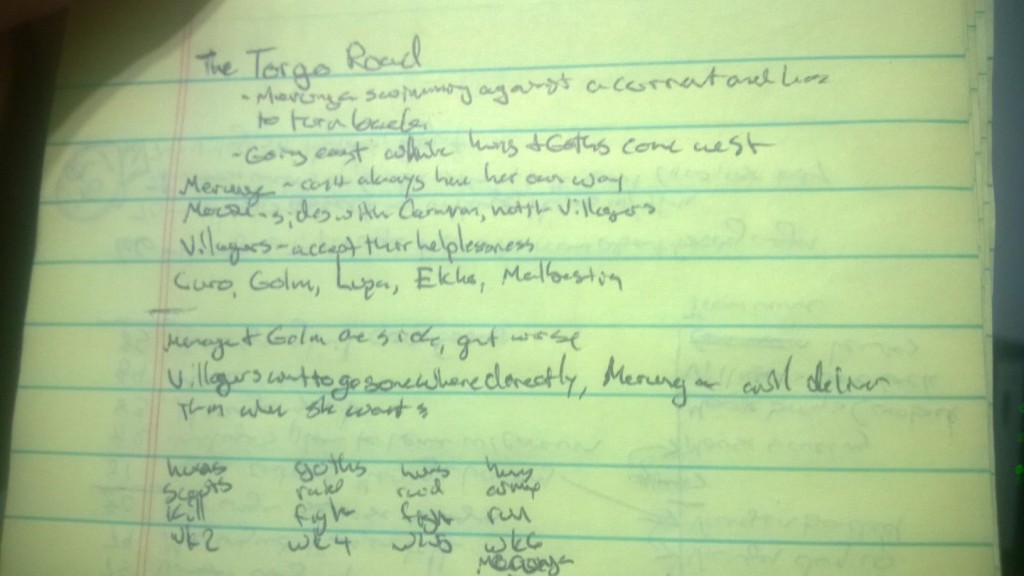 The Torgo Road
- swimming against a current and has
to turn back.
- Going east while huns & Goths come west
- can't always have her own way
- sides with Caravan, not th Villagers
Villagers - accept their helplessness
Curo, Golm, Lupa, Ekka,
& Golm are sick, get worse
Villagers want to go somewhere directly, can't deliver
them where she wants
huns goths huns huns
scouts raid raid army
kill fight fight run
wk2 wk4 wk5 wk6